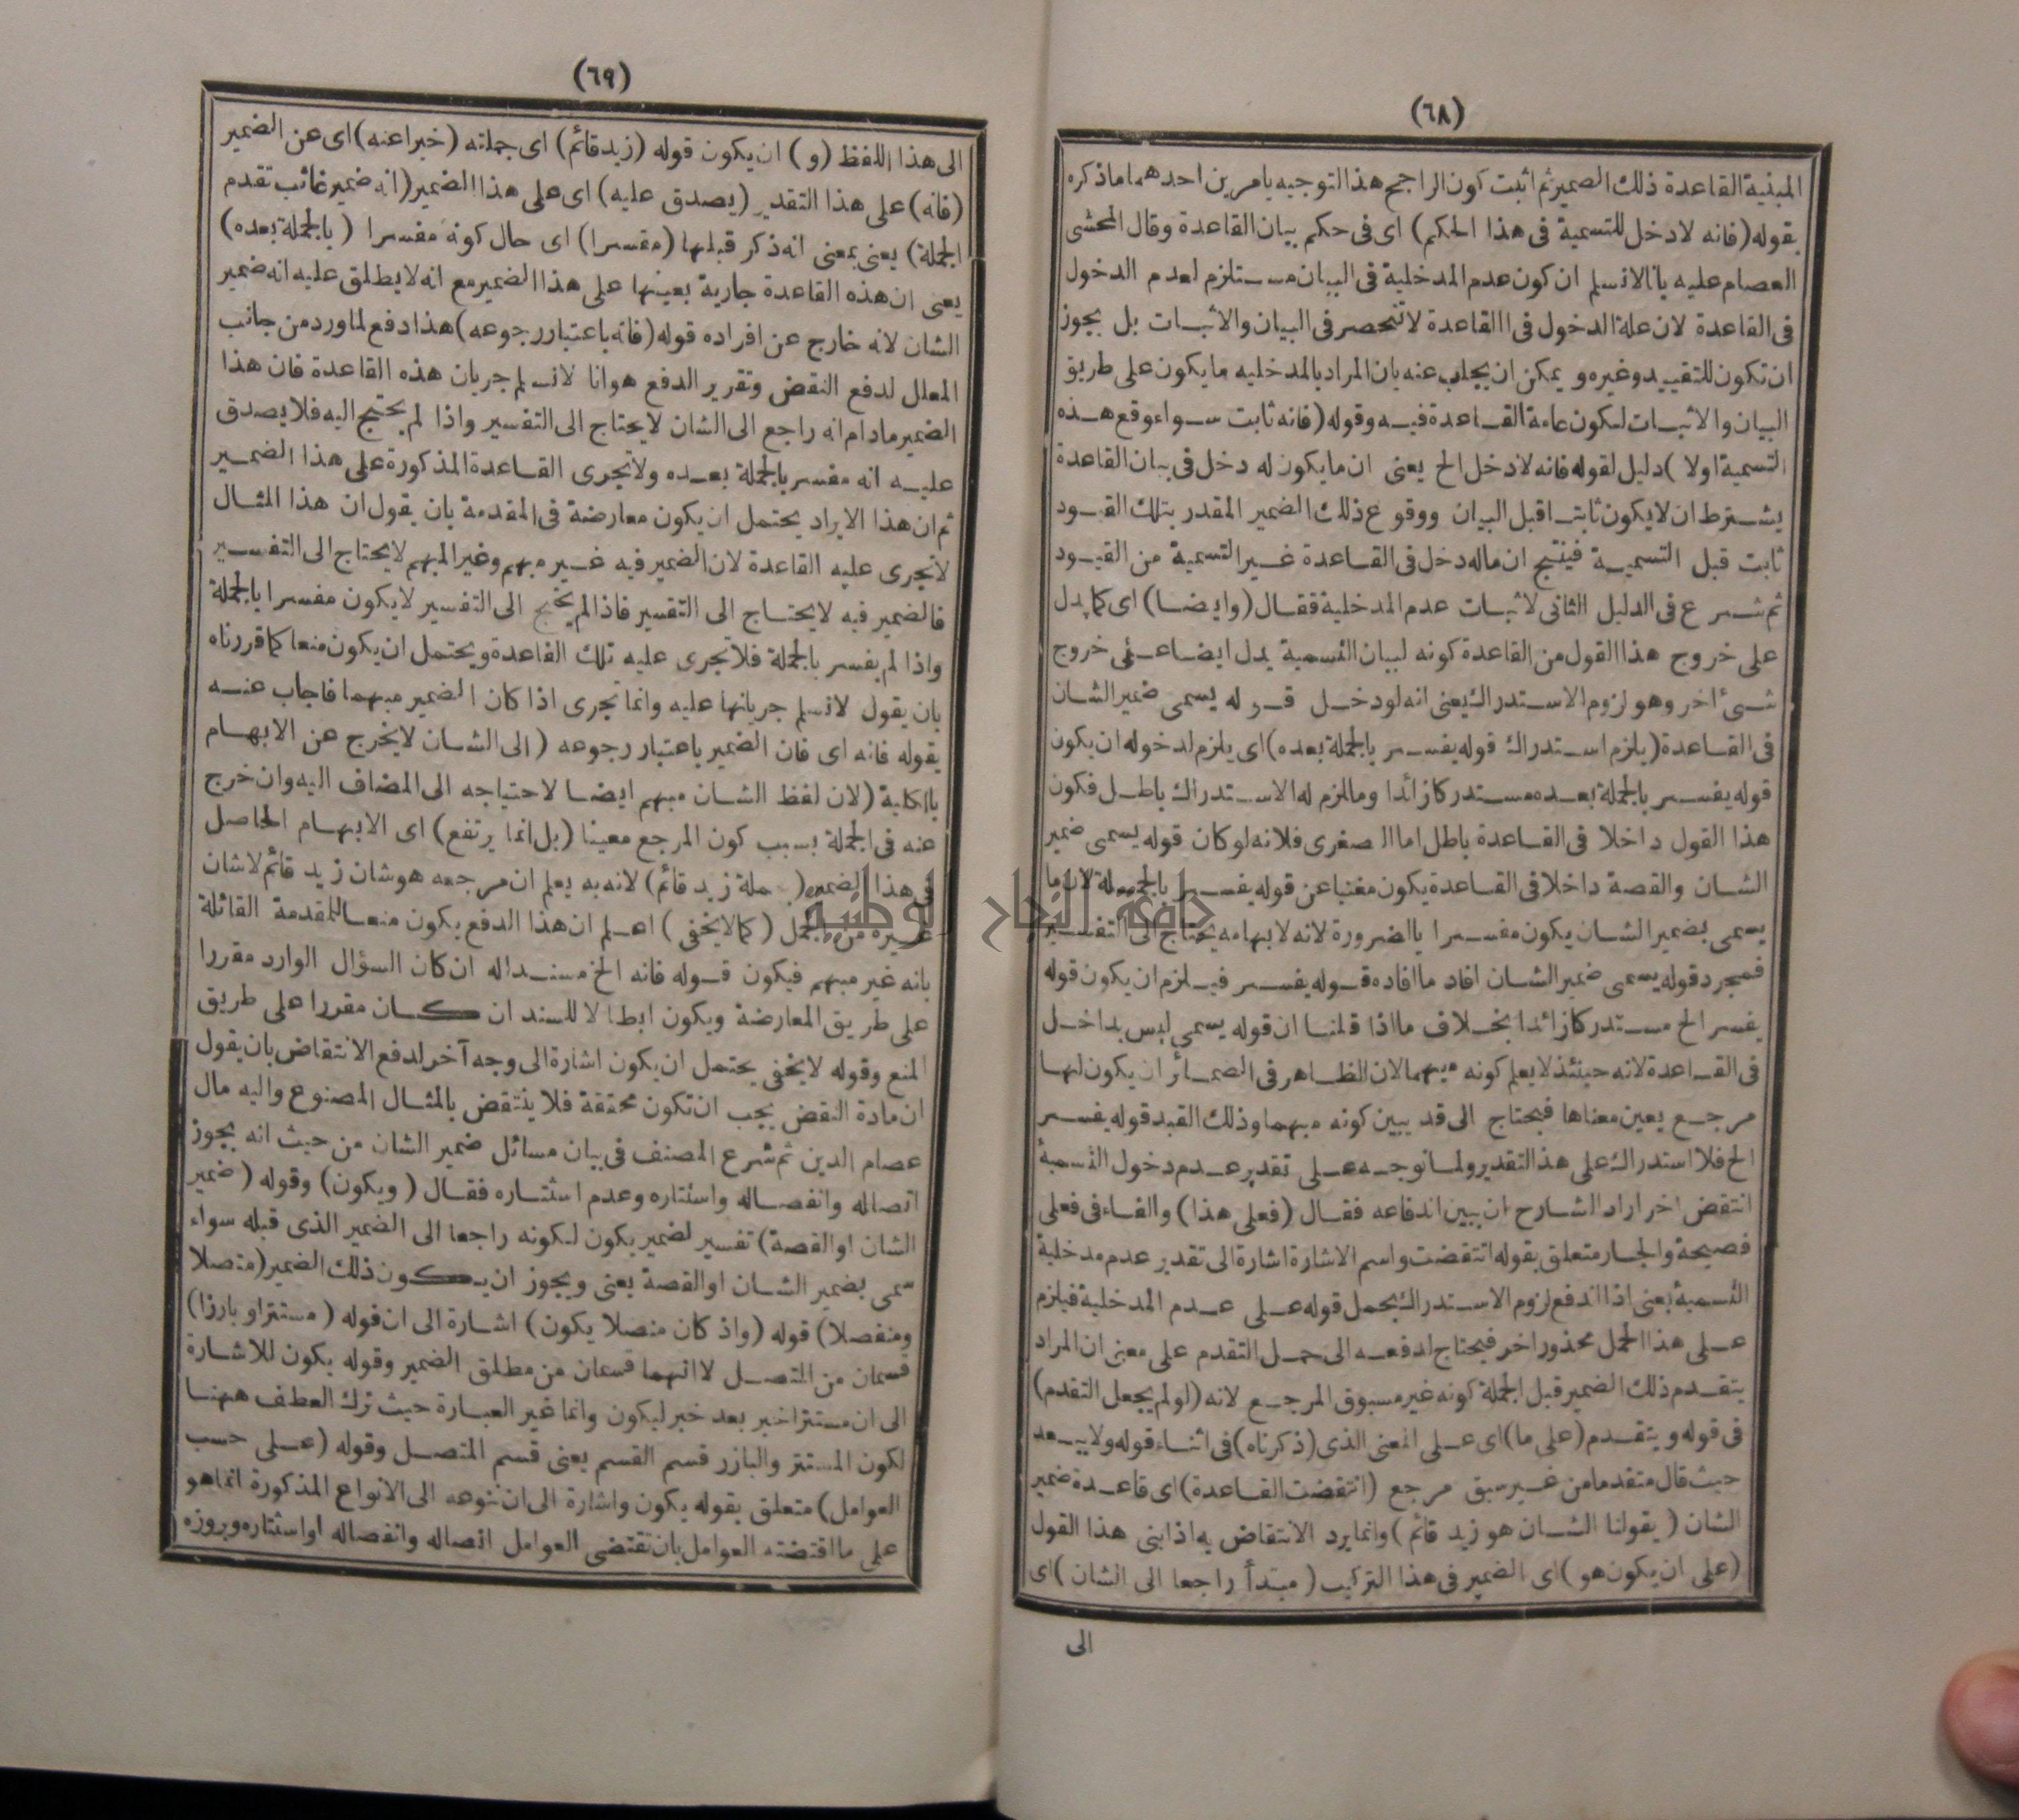 (٦٨)
المبنية القاعدة ذلك الضمير ثم اثبت كون الراجح هذا التوجيه بامرين احدهما ما ذكره
بقوله (فانه لا دخل للتسمية فى هذا الحكم) اى فى حكم بيان القاعدة وقال المحشى
العصام عليه بانا لانسلم ان كون عدم المدخلية فى البيان مستلزم لعدم الدخول
فى القاعدة لان علة الدخول فى القاعدة لا تنحصر فى البيان والاثبات بل يجوز
ان تكون للتقييد وغيره ويمكن ان يجاب عنه بان المراد بالمدخليه ما يكون على طريق
البيان والاثبات لكون عامة القاعدة فيه وقوله (فانه ثابت سواء وقع هذه
التسمية اولا) دليل لقوله فانه لادخل الخ يعنى ان ما يكون له دخل فى بيان القاعدة
يشترط ان لا يكون ثابتا قبل البيان ووقوع ذلك الضمير المقدر بتلك القيود
ثابت قبل التسمية فينتج ان ماله دخل فى القاعدة غير التسمية من القيود
ثم شرع فى الدليل الثانى لاثبات عدم المدخلية فقال (وايضا) اى كما يدل
على خروج هذا القول من القاعدة كونه لبيان التسمية يدل ايضا على خروج
شئ اخر وهو لزوم الاستدراك يعنى انه لو دخل قوله يسمى ضمير الشان
فى القاعدة (يلزم استدراك قوله يفسر بالجملة بعده) اى يلزم لدخوله ان يكون
قوله يفسر بالجملة بعده مستدركا زائدا وما لزم له الاستدراك باطل فكون
هذا القول داخلا فى القاعدة باطل اما الصغرى فلانه لو كان قوله يسمى ضمير
الشان والقصة داخلا فى القاعدة يكون مغنيا عن قوله يفسر بالجملة لان ما
يسمى بضمير الشان يكون مفسرا بالضرورة لانه لابهامه يحتاج الى التفسير
فمجرد قوله يسمى ضمير الشان افاد ما افاده قوله يفسر فيلزم ان يكون قوله
يفسر الخ مستدركا زائدا بخلاف ما اذا قلنا ان قوله يسمى ليس بداخل
فى القاعدة لانه حينئذ لا يعلم كونه مبهما لان الظاهر فى الضمائر ان يكون لها
مرجع يعين معناها فيحتاج الى قيد يبين كونه مبهما وذلك القيد قوله يفسر
الخ فلا استدراك على هذا التقدير ولما توجه على تقدير عدم دخول التسمية
انتقض اخر اراد الشارح ان يبين اندفاعه فقال (فعلى هذا) والفاء فى فعلى
فصيحة والجار متعلق بقوله انتقضت واسم الاشارة اشارة الى تقدير عدم مدخلية
التسمية يعنى اذا اندفع لزوم الاستدراك بحمل قوله على عدم المدخلية فيلزم
على هذا الحمل محذور اخر فيحتاج لدفعه الى حمل التقدم على معنى ان المراد
يتقدم ذلك الضمير قبل الجملة كونه غير مسبوق المرجع لانه (لو لم يجعل التقدم)
فى قوله ويتقدم (على ما) اى على المعنى الذى (ذكرناه) فى اثناء قوله ولا يبعد
حيث قال متقدما من غير سبق مرجع (انتقضت القاعدة) اى قاعدة ضمير
الشان (بقولنا الشان هو زيد قائم) وانما يرد الانتقاض به اذا بنى هذا القول
(على ان يكون هو) اى الضمير فى هذا التركيب (مبتدأ راجعا الى الشان) اى
الى
(٦٩)
الى هذا اللفظ (و) ان يكون قوله (زيد قائم) اى جملته (خبرا عنه) اى عن الضمير
(فانه) على هذا التقدير (يصدق عليه) اى على هذا الضمير (انه ضمير غائب تقدم
الجملة) يعنى بمعنى انه ذكر قبلها (مفسرا) اى حال كونه مفسرا (بالجملة بعده)
يعنى ان هذه القاعدة جارية بعينها على هذا الضمير مع انه لا يطلق عليه انه ضمير
الشان لانه خارج عن افراده قوله (فانه باعتبار رجوعه) هذا دفع لما ورد من جانب
المعلل لدفع النقض وتقرير الدفع هو انا لانسلم جريان هذه القاعدة فان هذا
الضمير مادام انه راجع الى الشان لا يحتاج الى التفسير واذا لم يحتج اليه فلا يصدق
عليه انه مفسر بالجملة بعده ولا تجرى القاعدة المذكورة على هذا الضمير
ثم ان هذا الايراد يحتمل ان يكون معارضة فى المقدمة بان يقول ان هذا المثال
لا تجرى عليه القاعدة لان الضمير فيه غير مبهم وغير المبهم لا يحتاج الى التفسير
فالضمير فيه لا يحتاج الى التفسير فاذا لم يحتج الى التفسير لا يكون مفسرا بالجملة
واذا لم يفسر بالجملة فلا تجرى عليه تلك القاعدة ويحتمل ان يكون منعا كما قررناه
بان يقول لانسلم جريانها عليه وانما تجرى اذا كان الضمير مبهما فاجاب عنه
بقوله فانه اى فان الضمير باعتبار رجوعه (الى الشان لا يخرج عن الابهام
بالكلية (لان لفظ الشان مبهم ايضا لاحتياجه الى المضاف اليه وان خرج
عنه فى الجملة بسبب كون المرجع معينا (بل انما يرتفع) اى الابهام الحاصل
فى هذا الضمير (بجملة زيد قائم) لانه به يعلم ان مرجعه هو شان زيد قائم لا شان
غيره من الجمل (كما لا يخفى) اعلم ان هذا الدفع يكون منعا للمقدمة القائلة
بانه غير مبهم فيكون قوله فانه الخ مسندا له ان كان السؤال الوارد مقررا
على طريق المعارضة ويكون ابطالا للسند ان كان مقررا على طريق
المنع وقوله لا يخفى يحتمل ان يكون اشارة الى وجه آخر لدفع الانتقاض بان يقول
ان مادة النقض يجب ان تكون محققة فلا ينتقض بالمثال المصنوع واليه مال
عصام الدين ثم شرع المصنف فى بيان مسائل ضمير الشان من حيث انه يجوز
اتصاله وانفصاله واستتاره وعدم استتاره فقال (ويكون) وقوله (ضمير
الشان او القصة) تفسير لضمير يكون لكونه راجعا الى الضمير الذى قبله سواء
سمى بضمير الشان او القصة يعنى ويجوز ان يكون ذلك الضمير (متصلا
ومنفصلا) قوله (واذ كان متصلا يكون) اشارة الى ان قوله (مستترا وبارزا)
قسمان من المتصل لا انهما قسمان من مطلق الضمير وقوله يكون للاشارة
الى ان مستترا خبر بعد خبر ليكون وانما غير العبارة حيث ترك العطف ههنا
لكون المستتر والبارز قسم القسم يعنى قسم المتصل وقوله (على حسب
العوامل) متعلق بقوله يكون واشارة الى ان تنوعه الى الانواع المذكورة انما هو
على ما اقتضته العوامل بان تقتضى العوامل اتصاله وانفصاله او استتاره وبروزه
جامعة النجاح الوطنية